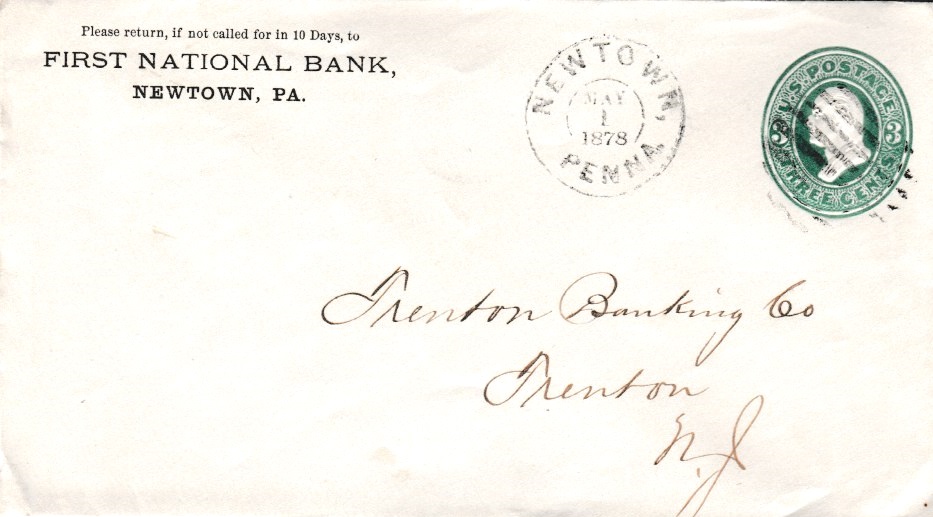 Please return, if not called for in 10 Days, to
FIRST NATIONAL BANK,
NEWTOWN, PA.
NEWTOWN,
MAY
1
1878
PENNA
U.S. POSTAGE
3 3
THREE CENTS
Trenton Banking Co
Trenton
N.J